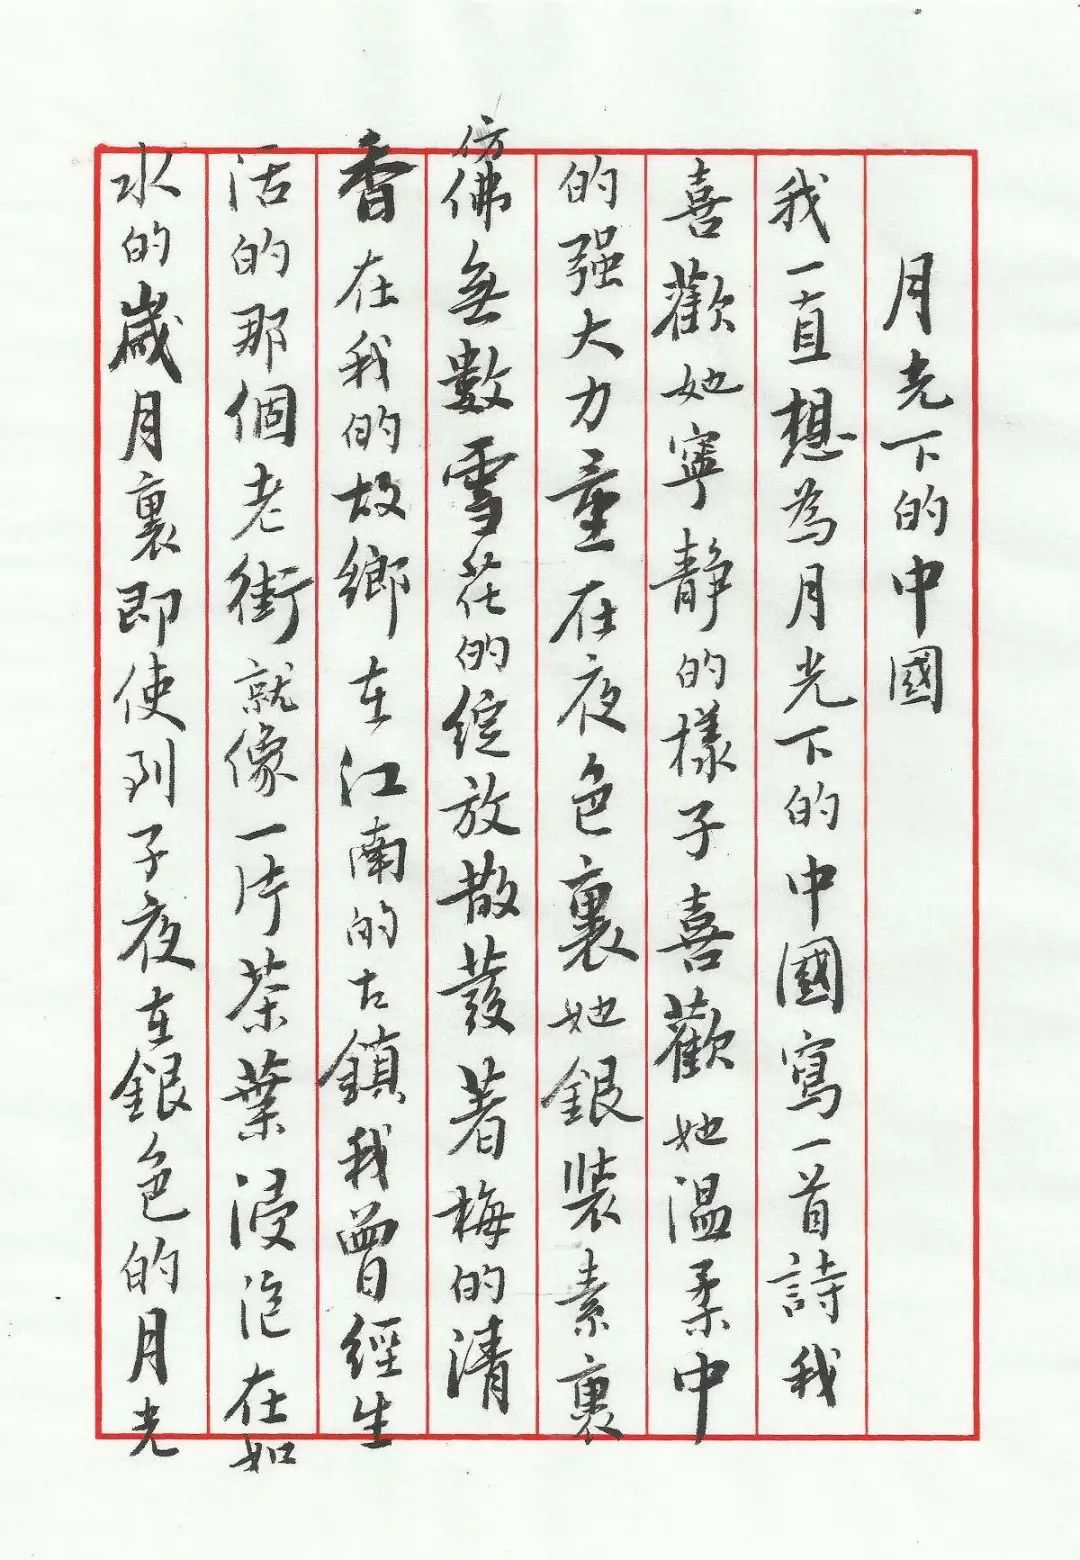 月光下的中國
我一直想為月光下的中國寫一首詩我
喜歡她寧靜的樣子喜歡她温柔中
的强大力量在夜色裏她銀裝素裹
仿佛無數雪花的綻放散發著梅的清
香在我的故鄉在江南的古鎮我曾經生
活的那個老街就像一片茶葉浸泡在如
水的歲月裏即使到子夜在銀色的月光